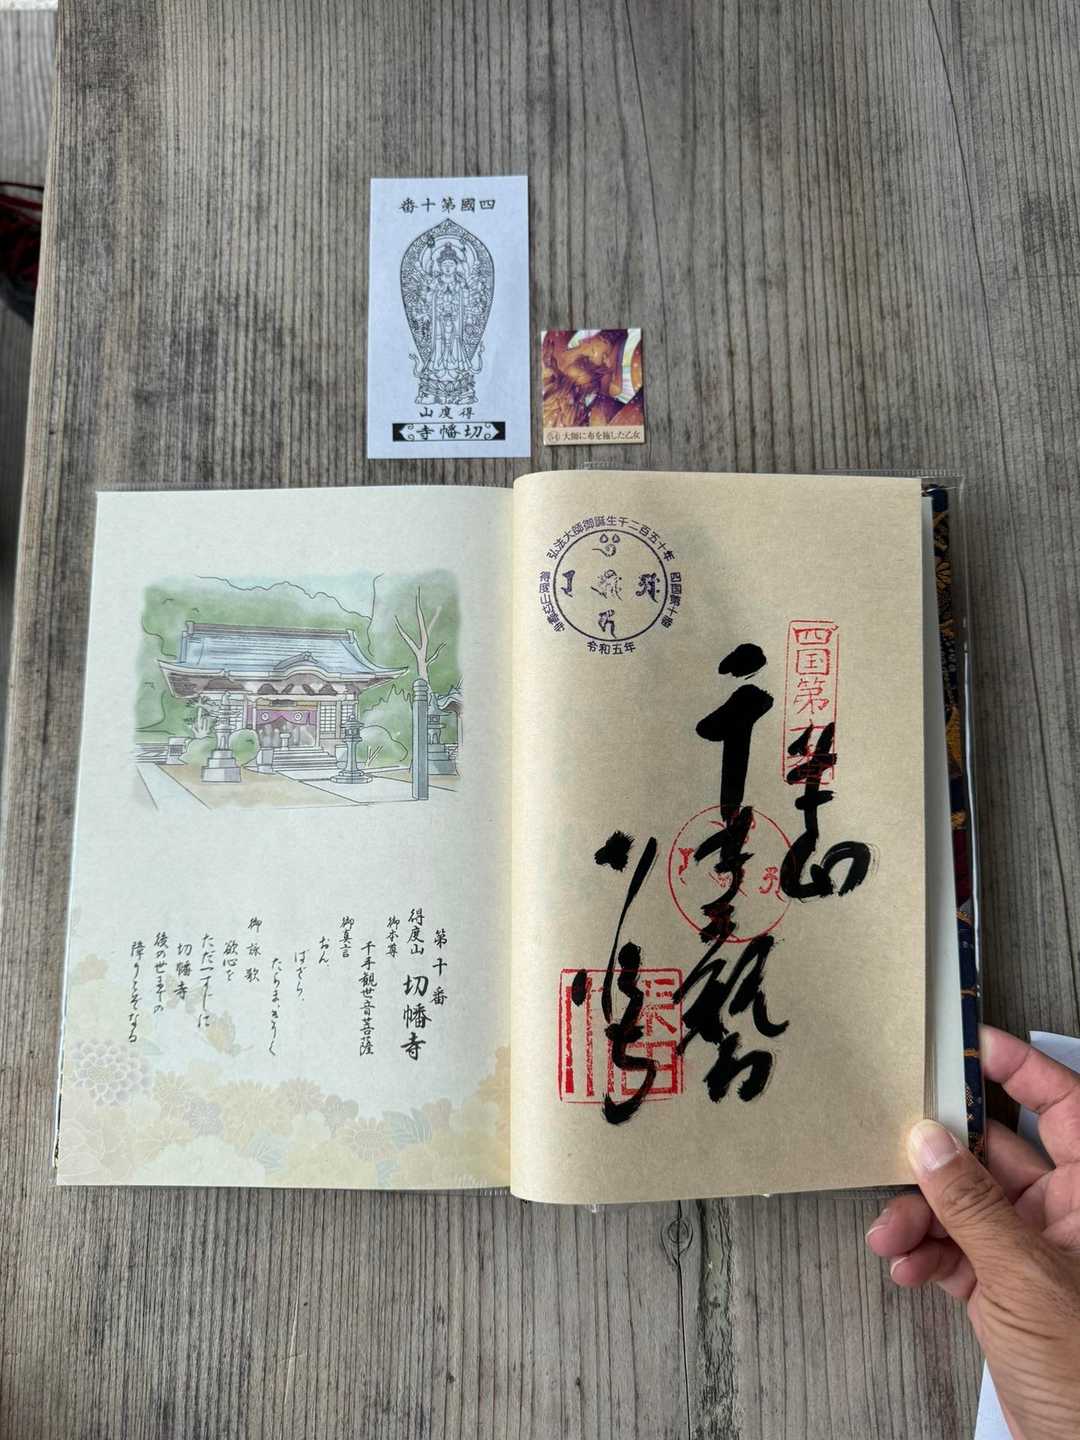 四國第十番
得度山
切幡寺
54 大師に布を施した乙女
弘法大師御誕生千二百五十年
四国第十番
得度山切幡寺
令和五年
四国第十番
奉
千手
第十番
得度山 切幡寺
御本尊
千手観世音菩薩
御真言
おん、
ばざら、
たらま、きりく
御詠歌
欲心を
ただ一すじに
切幡寺
後の世までの
障りとぞなる